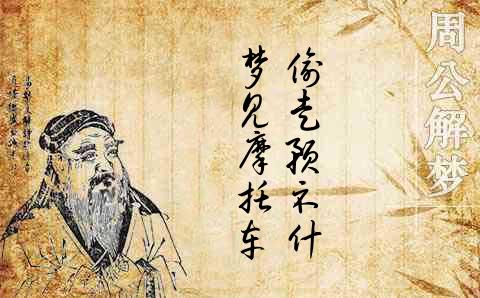 周公解梦
偷走预示什
梦见摩托车